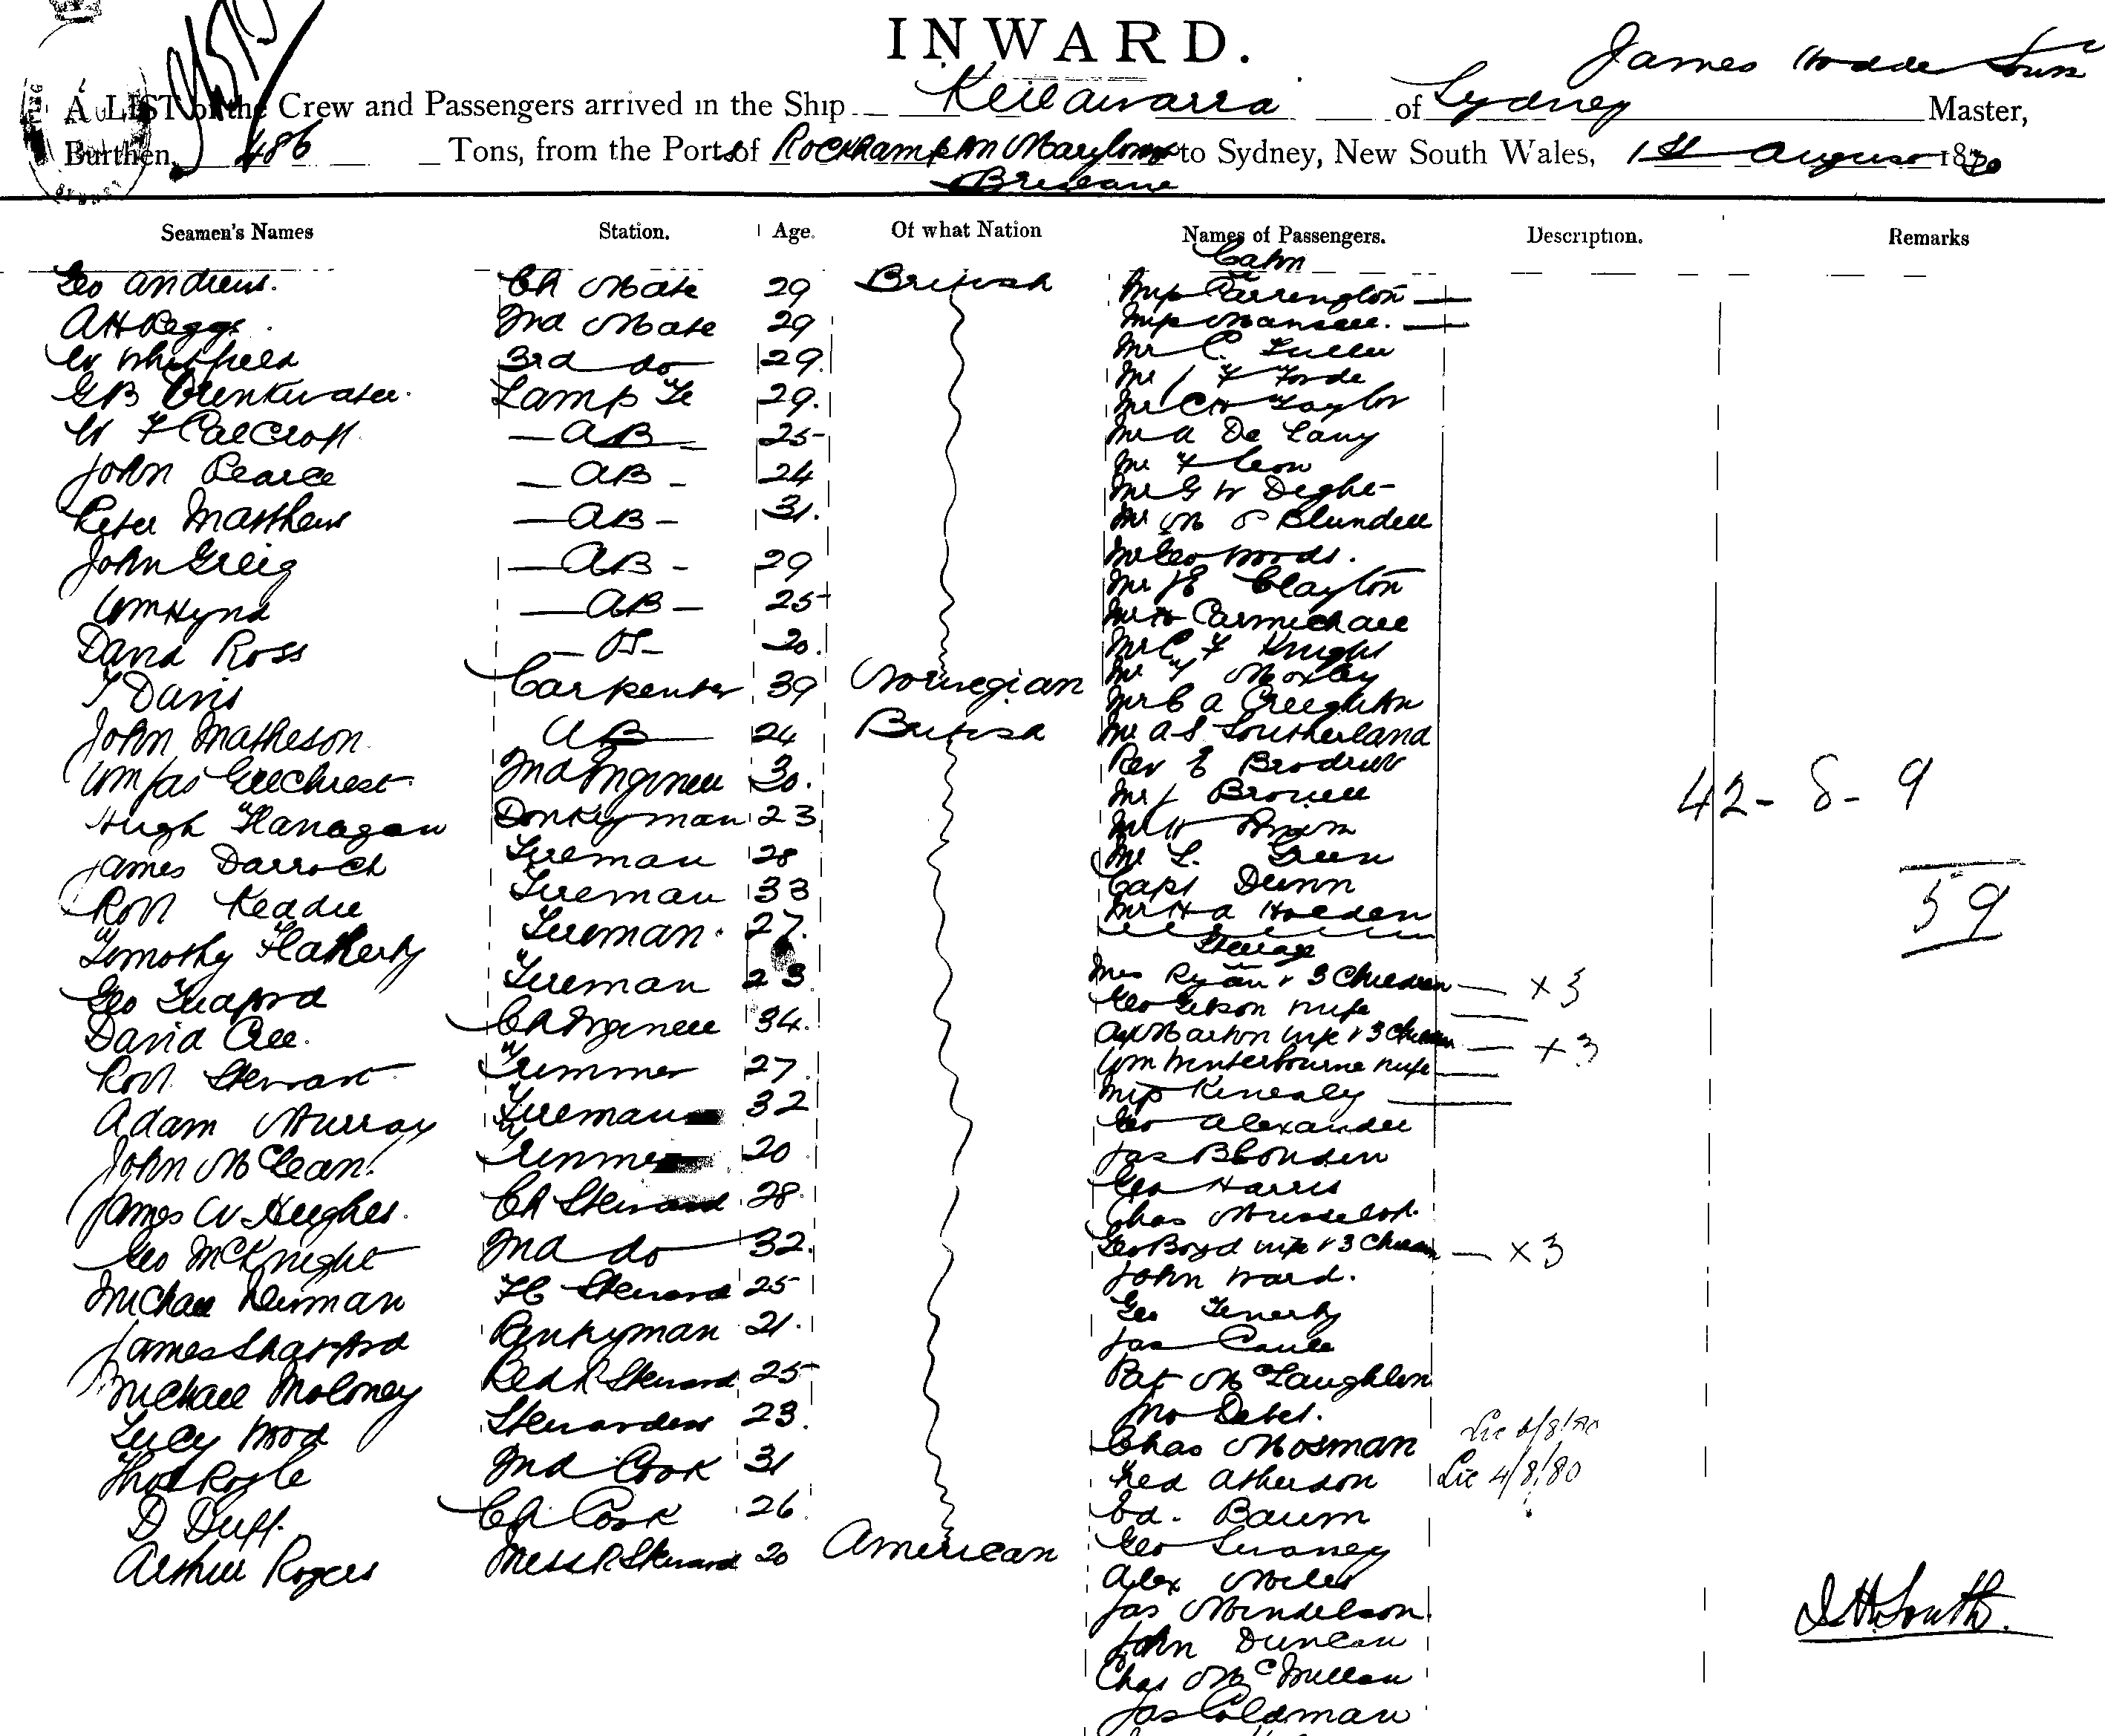 INWARD.
James
A LIST of the Crew and Passengers arrived in the Ship Keilawarra of Sydney Master,
Burthen, 486 Tons, from the Ports of Rockhampton Maryboro to Sydney, New South Wales, 1st August 1880
Brisbane
Seamen's Names Station. Age. Of what Nation Names of Passengers. Description. Remarks
Cabin
Geo Andrews. Ch Mate 29 British Miss Farrington
A H Beggs. 2nd Mate 29 Miss Mansell.
W Whitfield 3rd do 29. Mr C. Fuller
G B Drinkwater. Lamp Tr 29. Mr J F Forde
W F Calcroft AB 25 Mr C H Taylor
John Pearce AB 24 Mr A De Lany
Peter Matthews AB 31. Mr F Leon
John Greig AB 29 Mr G W
Wm Hynd AB 25 Mr M P Blundell
David Ross OS 20. Mr Geo Woods.
T Davis Carpenter 39 Norwegian Mr J E Clayton
John Matheson AB 24 British Mr H Carmichael
Wm Jas Gilchrest 2nd Engineer 30. Mr C F Knight
Hugh Flanagan Donkeyman 23 Mr Moxley
James Darroch Fireman 28 Mr C A Creighton
Robt Keadie Fireman 33 Mr A S Southerland
Timothy Flatherty Fireman. 27. Rev E Brodrick
Geo Fudford Fireman 23 Mr J Browell
David Cree. Ch Engineer 34. Mr W Brown
Robt Stewart Trimmer 27. Mr L. Green
Adam Murray Fireman 32 Capt Dunn
John McClean. Trimmer 20 Mr H A Holden
James W Hughes. Ch Steward 28. Steerage
Geo McKnight 2nd do 32. Mrs Ryan & 3 Children x 3
Michael Dewman FC Steward 25 Geo Gibson wife
James Shatford Pantryman 21. Alex Marton wife & 3 Children x 3
Michael Moloney Bed R Steward 25 Wm Winterbourne wife
Lucy Wood Stewardess 23. Miss Kenealy
Thos Royle 2nd Cook 31 Geo Alexander
D Duff. Ch Cook 26 Jas Blonden
Arthur Rogers Mess R Steward 20 American Geo Harris
Chas
Geo Boyd wife & 3 Children x 3
John Ward.
Geo Fenerty
Jas Caule
Pat McLaughlin
Jno Debet.
Chas Mosman Lie 4/8/80
Fred Atherdon Lie 4/8/80
Ed. Baum
Geo
Alex Miles
Jas Mendelson.
John Duncan
Chas McMillan
Jas Coldman
42- 8- 9
59
J. H. South.